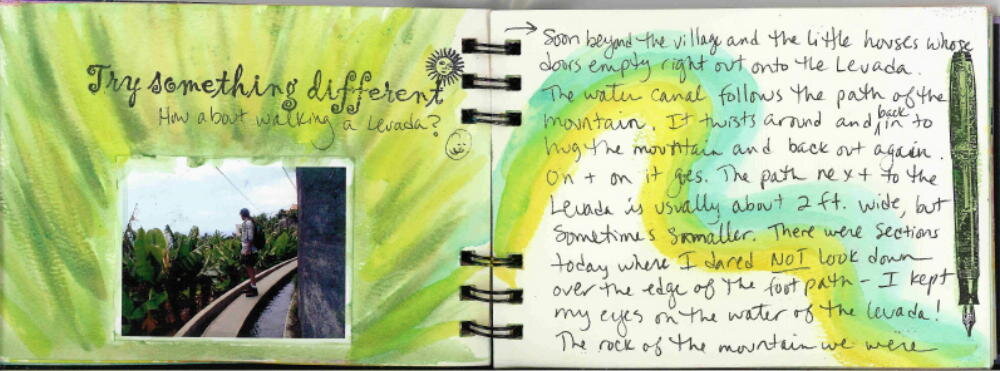 Try something different
How about walking a Levada?
→ Soon beyond the village and the little houses whose
doors empty right out onto the Levada.
The water canal follows the path of the
mountain. It twists around and back in to
hug the mountain and back out again.
On + on it goes. The path next to the
Levada is usually about 2 ft. wide, but
Sometimes smaller. There were sections
today where I dared NOT look down
over the edge of the foot path - I kept
my eyes on the water of the levada!
The rock of the mountain we were